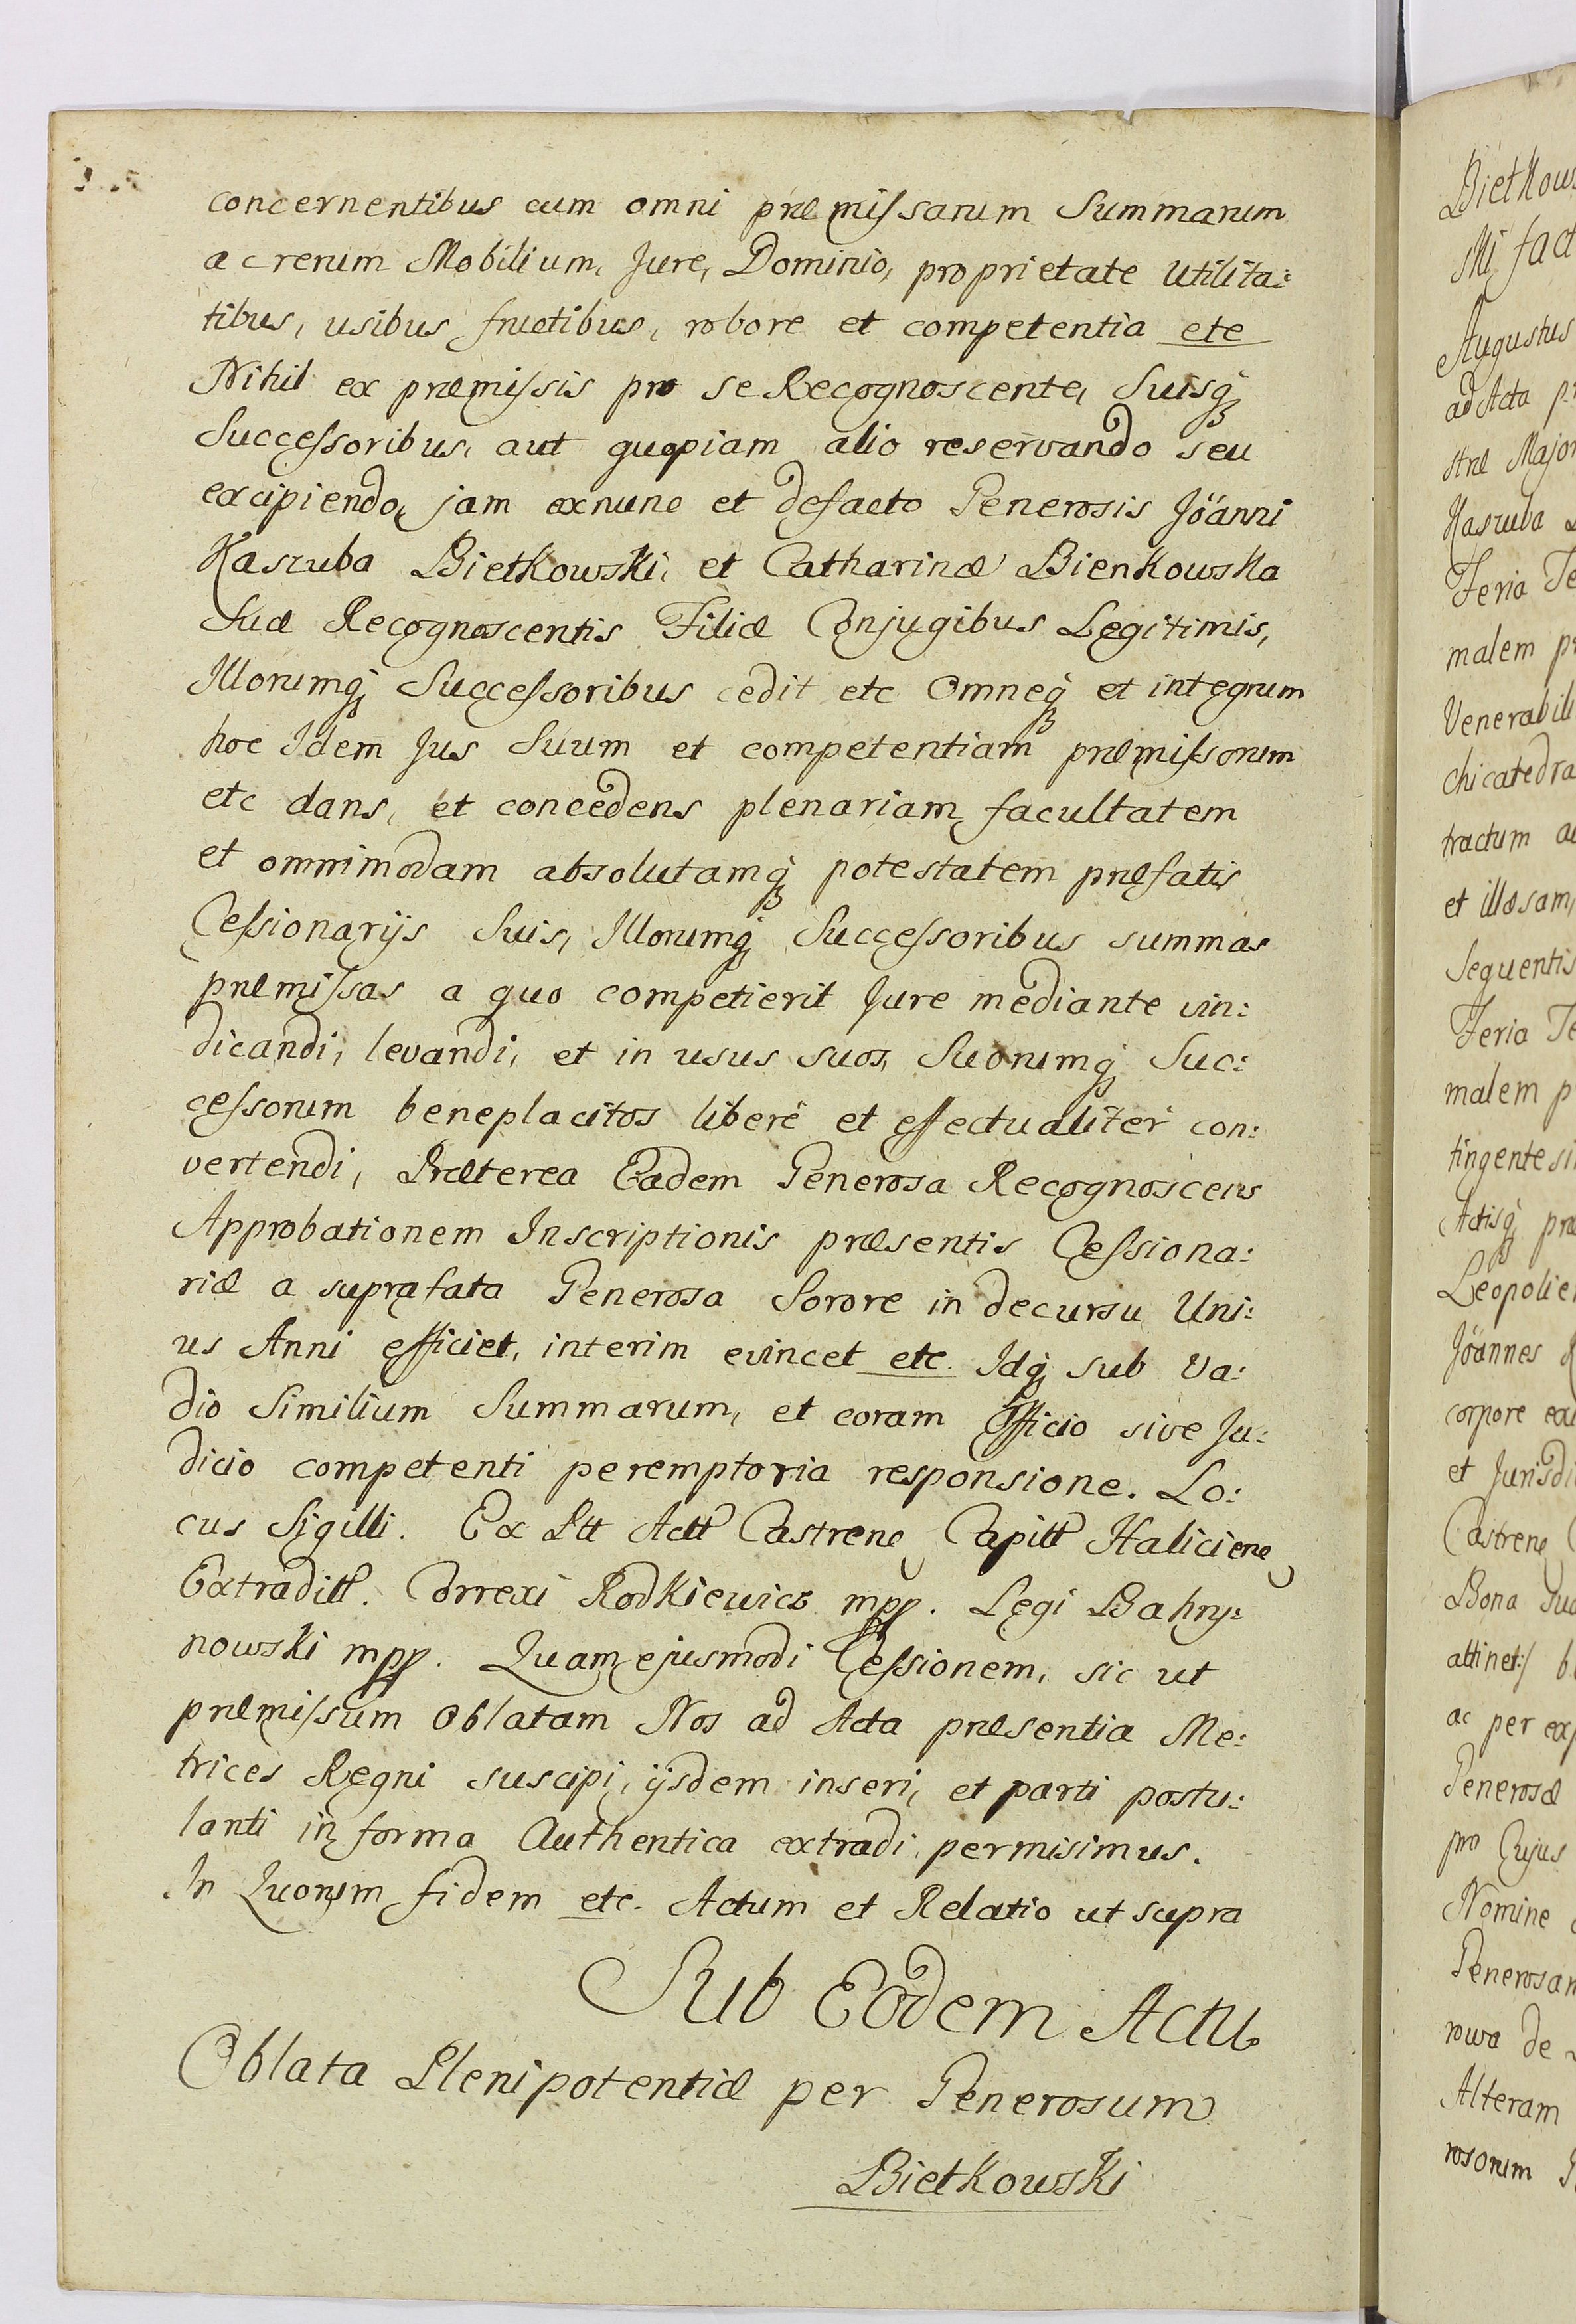 concernentibus cum omni præmissarum Summarum
ac rerum Mobilium, Jure, Dominio, proprietate Utilita:
tibus, usibus fructibus, robore et competentia etc
Nihil ex præmissis pro se Recognoscente, Suisq;
Successoribus, aut quopiam alio reservando seu
excipiendo, jam exnunc et defacto Generosis Joanni
Kaszuba Bietkowski, et Catharinæ Bienkowska
Suæ Recognoscentis Filiæ Conjugibus Legitimis,
Illorumq; Successoribus cedit etc Omneq; et integrum
hoc Idem Jus Suum et competentiam præmissorum
etc dans, et concedens plenariam facultatem
et omnimodam absolutamq; potestatem præfatis
Cessionarijs Suis, Illorumq; Successoribus summas
præmissas a quo competierit Jure mediante vin:
dicandi, levandi, et in usus suos, Suorumq; Suc:
cessorum beneplacitos liberè et effectualitèr con:
vertendi, Præterea Eadem Generosa Recognoscens
Approbationem Inscriptionis præsentis Cessiona:
riæ a suprafata Generosa Sorore in decursu Uni:
us Anni efficiet, interim evincet etc. Idq; sub Va:
dio Similium Summarum, et coram Officio sive Ju:
dicio competenti peremptoria responsione. Lo:
cus Sigilli. Ex Ptt Actt Castren Capitt Halicien
Extraditt. Correxi Rodkiewicz mpp. Legi Bahry:
nowski mpp. Quam ejusmodi Cessionem, sic ut
præmissum Oblatam Nos ad Acta præsentia Me:
trices Regni suscipi, ijsdem inseri, et parti postu:
lanti in forma Authentica extradi permisimus.
In Quorum fidem etc. Actum et Relatio ut supra
Sub Eodem Actu
Oblata Plenipotentiæ per Generosum
Bietkowski
Augustus
ad Acta
Kaszuba
Feria
malem
tractum
Sequentis
Feria
malem
Actisq;
Joannes
corpore
et
Bona
ac per
Generosæ
pro Cujus
Nomine
Alteram